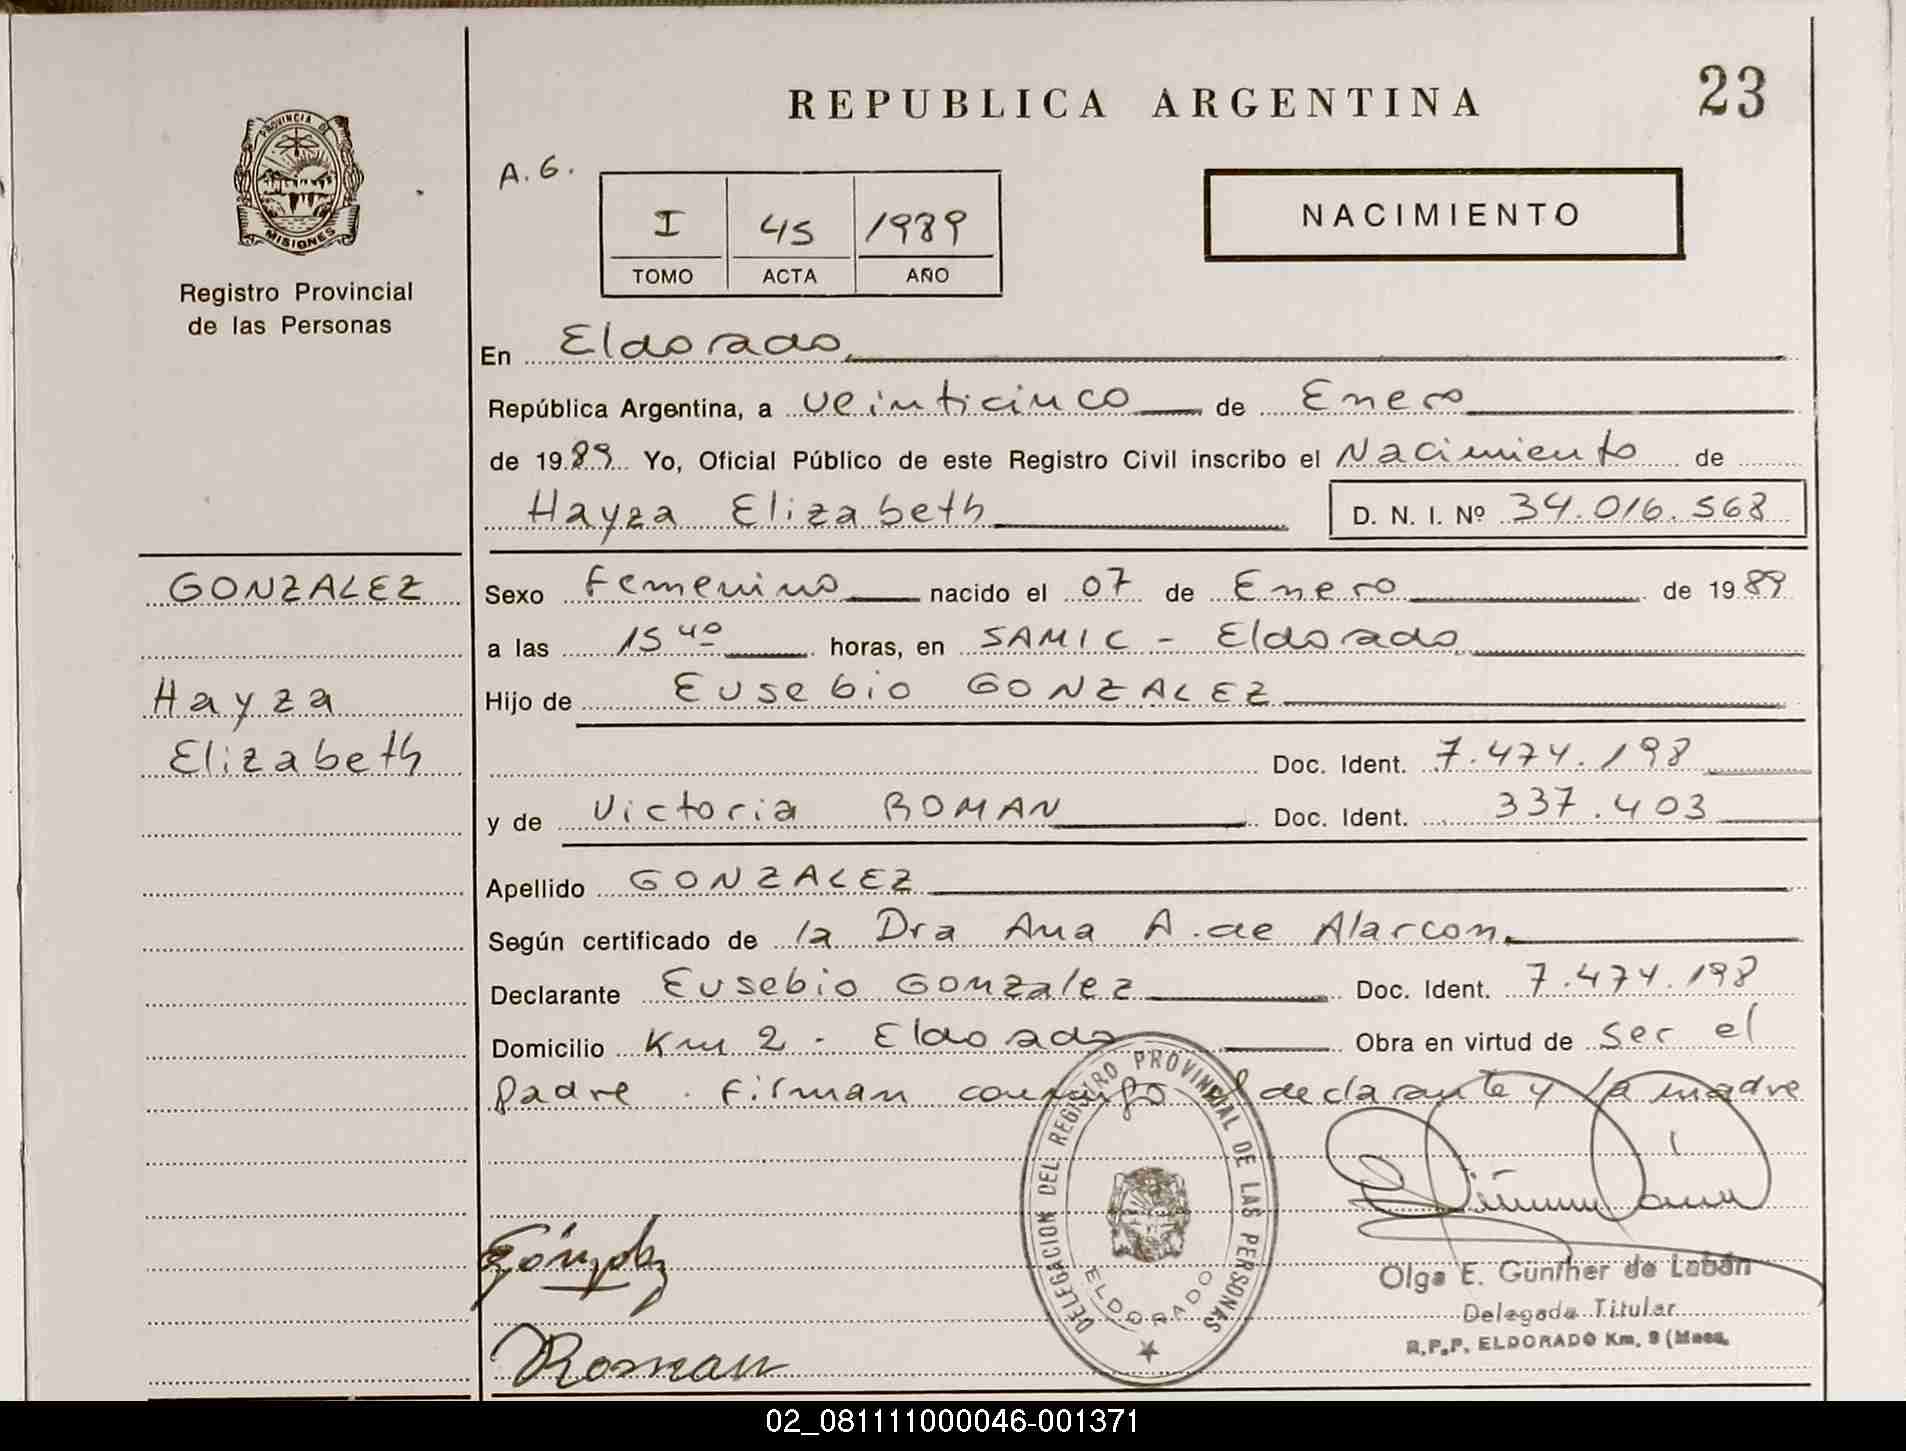 REPUBLICA ARGENTINA
23
PROVINCIA DE
MISIONES
Registro Provincial
de las Personas
A. G.
I 45 1989
TOMO ACTA AÑO
NACIMIENTO
En Eldorado,
República Argentina, a veinticinco de Enero
de 1989 Yo, Oficial Público de este Registro Civil inscribo el Nacimiento de
Hayza Elizabeth D. N. I. Nº 34.016.568
GONZALEZ
Hayza
Elizabeth
Sexo femenino nacido el 07 de Enero de 1989
a las 15 40 horas, en SAMIC - Eldorado,
Hijo de Eusebio GONZALEZ
Doc. Ident. 7.474.198
y de Victoria ROMAN Doc. Ident. 337.403
Apellido GONZALEZ
Según certificado de la Dra Ana A. de Alarcon,
Declarante Eusebio Gonzalez Doc. Ident. 7.474.198
Domicilio Km 2 - Eldorado Obra en virtud de ser el
padre. Firman conmigo el declarante y la madre
DELEGACION DEL REGISTRO PROVINCIAL DE LAS PERSONAS
ELDORADO
Gonzalez
Roman
Olga E. Günther de Labán
Delegada Titular
R.P.P. ELDORADO Km. 9 (Mnes.
02_081111000046-001371